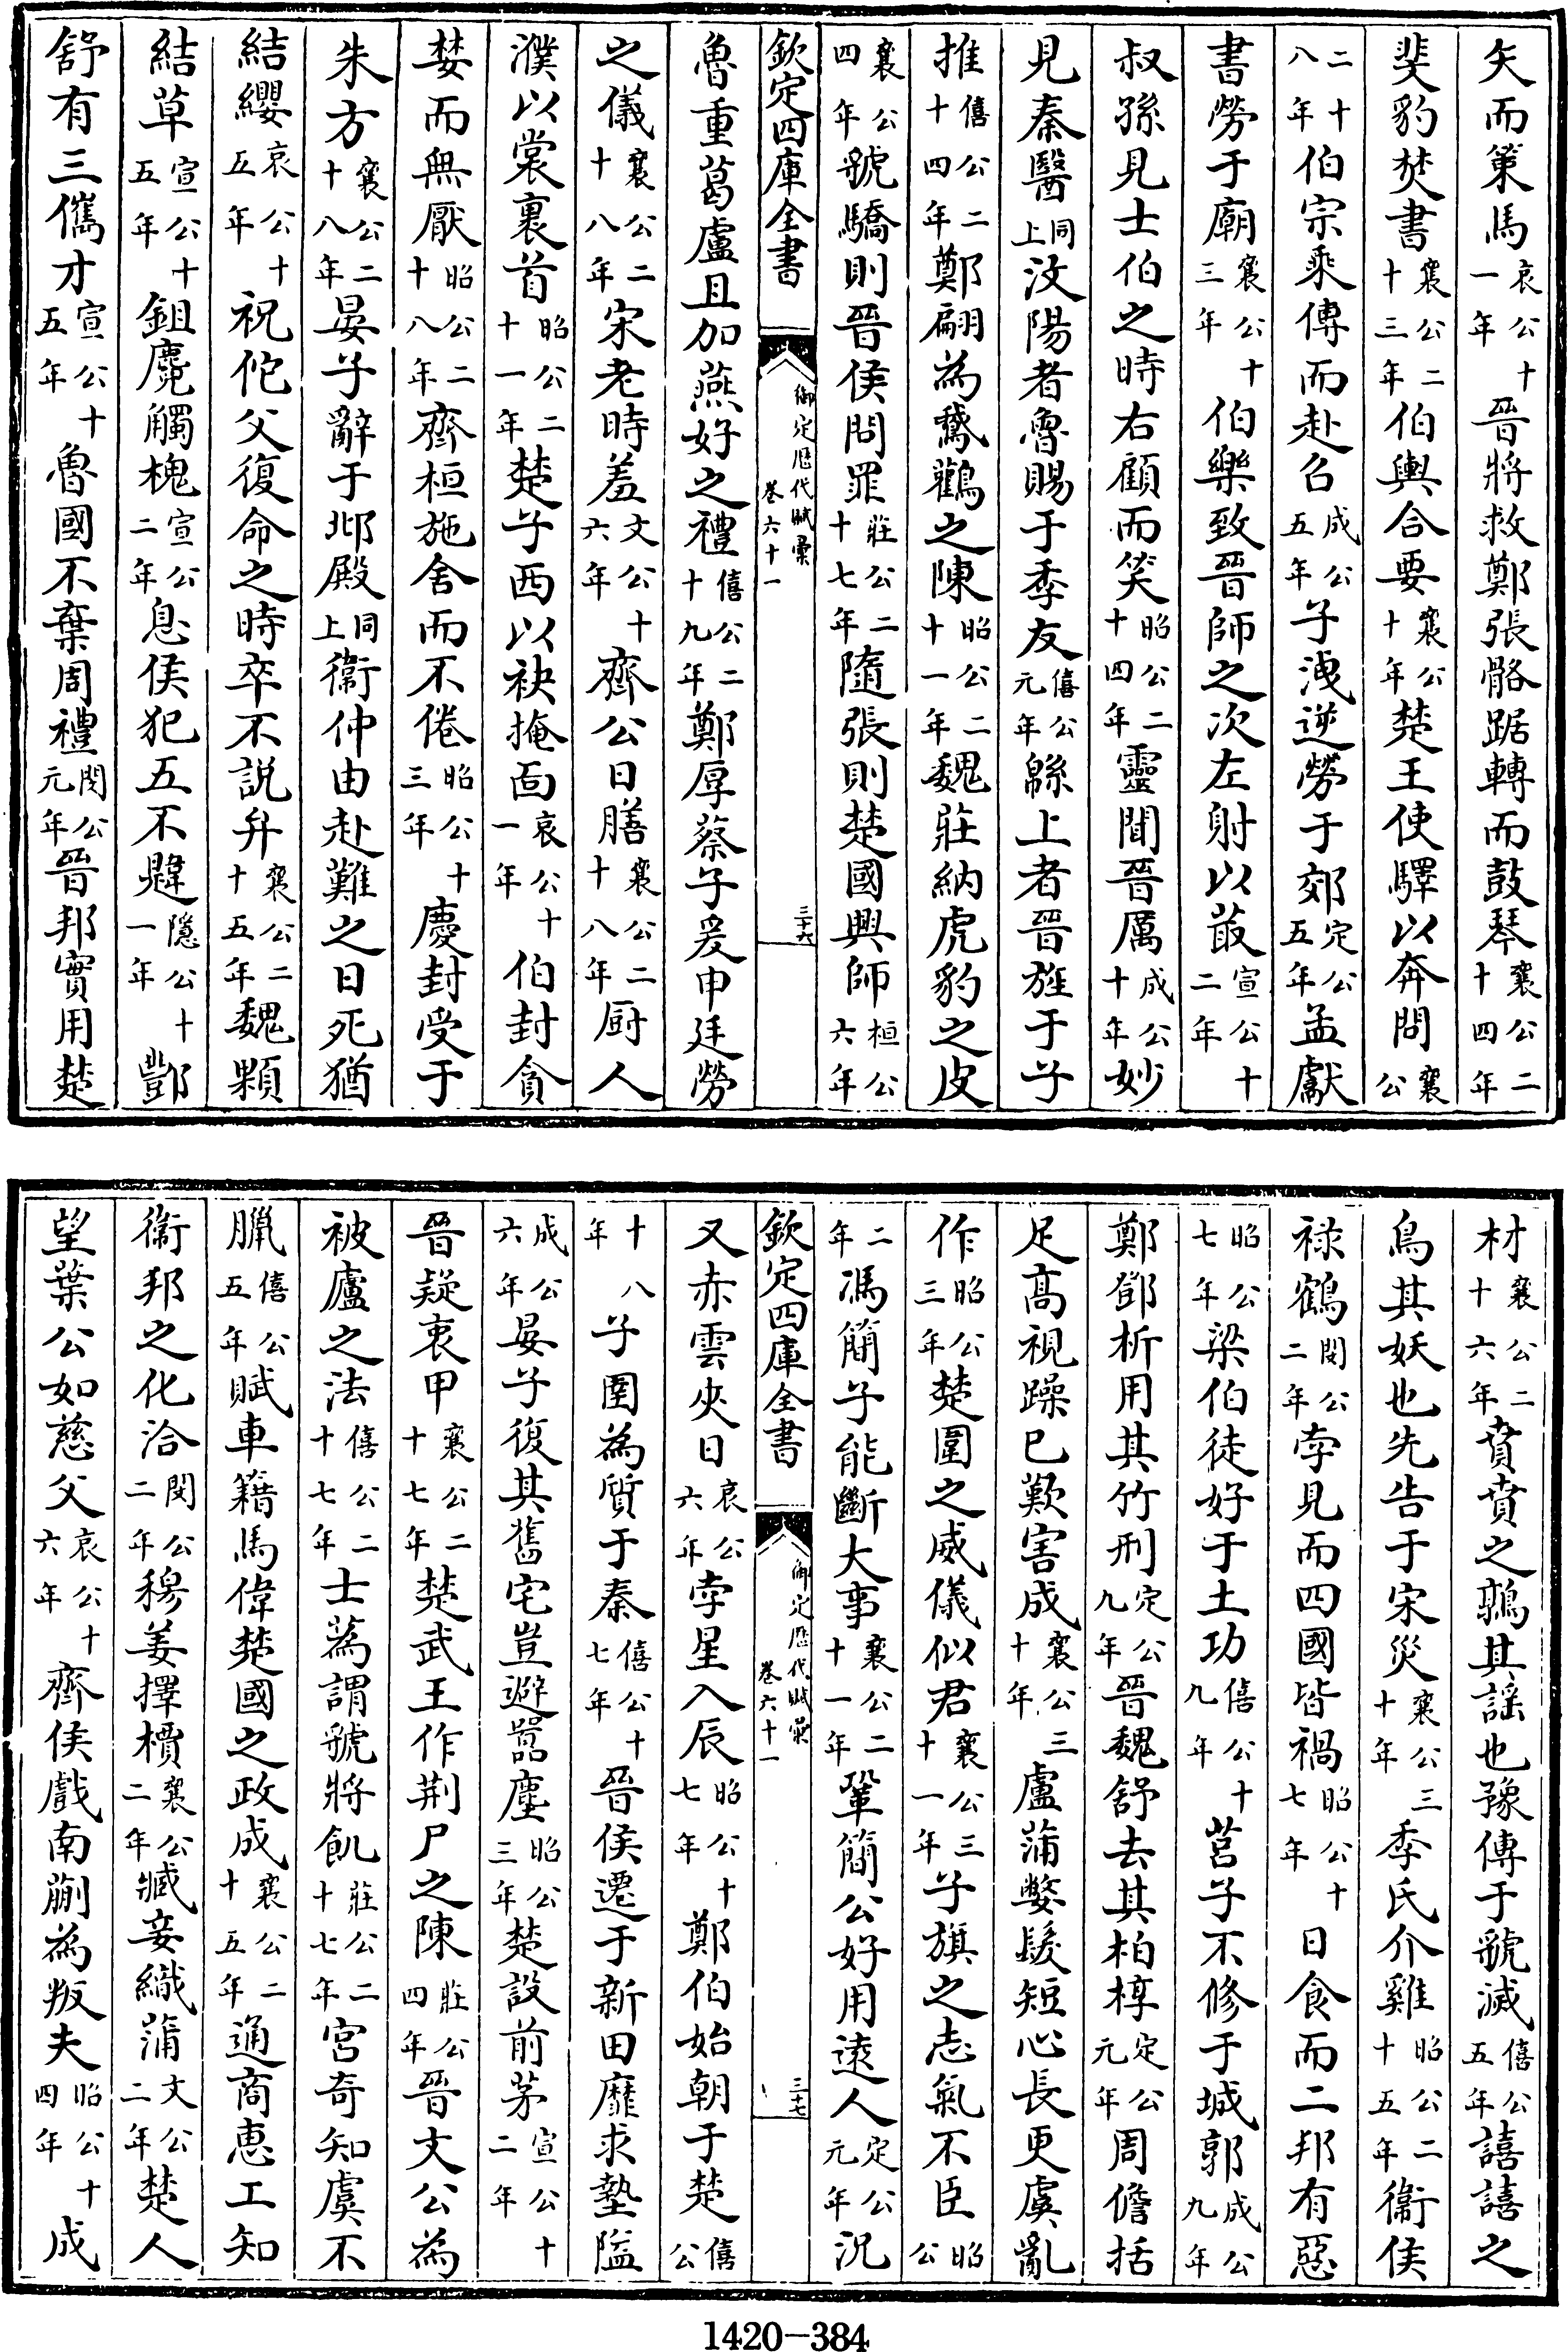 矢而策馬哀公十一年晉將救鄭張骼踞轉而鼓琴襄公二十四年
斐豹焚書襄公二十三年伯輿合要襄公十年楚王使驛以奔問襄公
二十八年伯宗乘傳而赴召成公五年子洩逆勞于郊定公五年孟獻
書勞于廟襄公十三年伯樂致晉師之次左射以菆宣公十二年
叔孫見士伯之時右顧而笑昭公二十四年靈聞晉厲成公十年妙
見秦醫同上汶陽者魯賜于季友僖公元年緜上者晉旌于子
推僖公二十四年鄭翩為鵞鸛之陳昭公二十一年魏莊納虎豹之皮
襄公四年虢驕則晉侯問罪莊公二十七年隨張則楚國興師桓公六年
欽定四庫全書 御定歷代賦彙 卷六十一 三十六
魯重葛盧且加燕好之禮僖公二十九年鄭厚蔡子爰申廷勞
之儀襄公二十八年宋老時羞文公十六年齊公日膳襄公二十八年厨人
濮以裳裹首昭公二十一年楚子西以袂掩面哀公十一年伯封貪
婪而無厭昭公二十八年齊桓施舍而不倦昭公十三年慶封受于
朱方襄公二十八年晏子辭于邶殿同上衞仲由赴難之日死猶
結纓哀公十五年祝佗父復命之時卒不説弁襄公二十五年魏顆
結草宣公十五年鉏麑觸槐宣公二年息侯犯五不韙隱公十一年酆
舒有三儁才宣公十五年魯國不棄周禮閔公元年晉邦實用楚
材襄公二十六年賁賁之鶉其謡也豫傳于虢滅僖公五年譆譆之
鳥其妖也先告于宋災襄公三十年季氏介雞昭公二十五年衞侯
祿鶴閔公二年孛見而四國皆禍昭公十七年日食而二邦有惡
昭公七年梁伯徒好于土功僖公十九年莒子不修于城郭成公九年
鄭鄧析用其竹刑定公九年晉魏舒去其柏椁定公元年周儋括
足高視躁已歎害成襄公三十年盧蒲嫳髮短心長更虞亂
作昭公三年楚圍之威儀似君襄公三十一年子旗之志氣不臣昭公
二年馮簡子能斷大事襄公二十一年鞏簡公好用遠人定公元年況
欽定四庫全書 御定歷代賦彙 卷六十一 三十七
又赤雲夾日哀公六年孛星入辰昭公十七年鄭伯始朝于楚僖公
十八年子圉為質于秦僖公十七年晉侯遷于新田靡求墊隘
成公六年晏子復其舊宅豈避囂塵昭公三年楚設前茅宣公十二年
晉疑衷甲襄公二十七年楚武王作荆尸之陳莊公四年晉文公為
被廬之法僖公二十七年士蒍謂虢將飢莊公二十七年宮奇知虞不
臘僖公五年賦車籍馬偉楚國之政成襄公二十五年通商惠工知
衞邦之化洽閔公二年穆姜擇檟襄公二年臧妾織蒲文公二年楚人
望葉公如慈父哀公十六年齊侯戲南蒯為叛夫昭公十四年成
1420-384